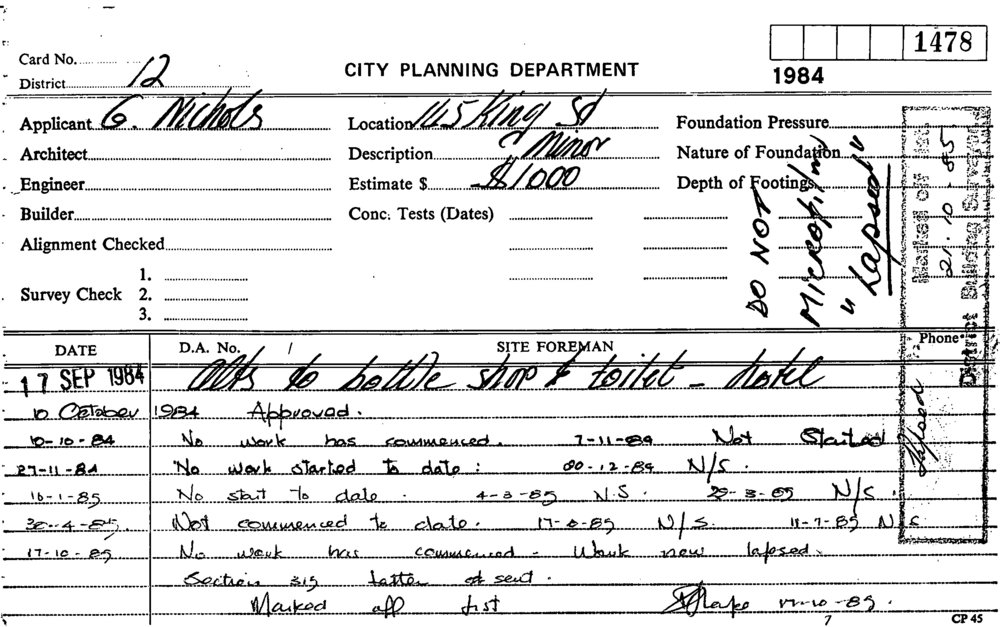 1478
1984
Card No.
District 12
CITY PLANNING DEPARTMENT
Applicant G. Nichols
Location 145 King St
Foundation Pressure
Architect
Description Minor
Nature of Foundation
Engineer
Estimate $ $1000
Depth of Footings
Builder
Conc. Tests (Dates)
Alignment Checked
Survey Check 1.
2.
3.
DO NOT
Microfilm
"Lapsed"
Marked off
21-10-85
District Building Surveyor
DATE D.A. No. / SITE FOREMAN Phone
17 SEP 1984 Alts to bottle shop & toilet - hotel
10 October 1984 Approved.
10-10-84 No work has commenced. 7-11-84 Not Started
27-11-84 No work started to date : 20-12-84 N/S.
16-1-85 No start to date. 4-3-85 N.S. 29-3-85 N/S.
30-4-85 Not commenced to date. 17-6-85 N/S. 11-7-85 N/S
17-10-85 No work has commenced - Work now lapsed.
Section 315 letter sent.
Marked off list 17-10-85.
Lapsed
7
CP 45